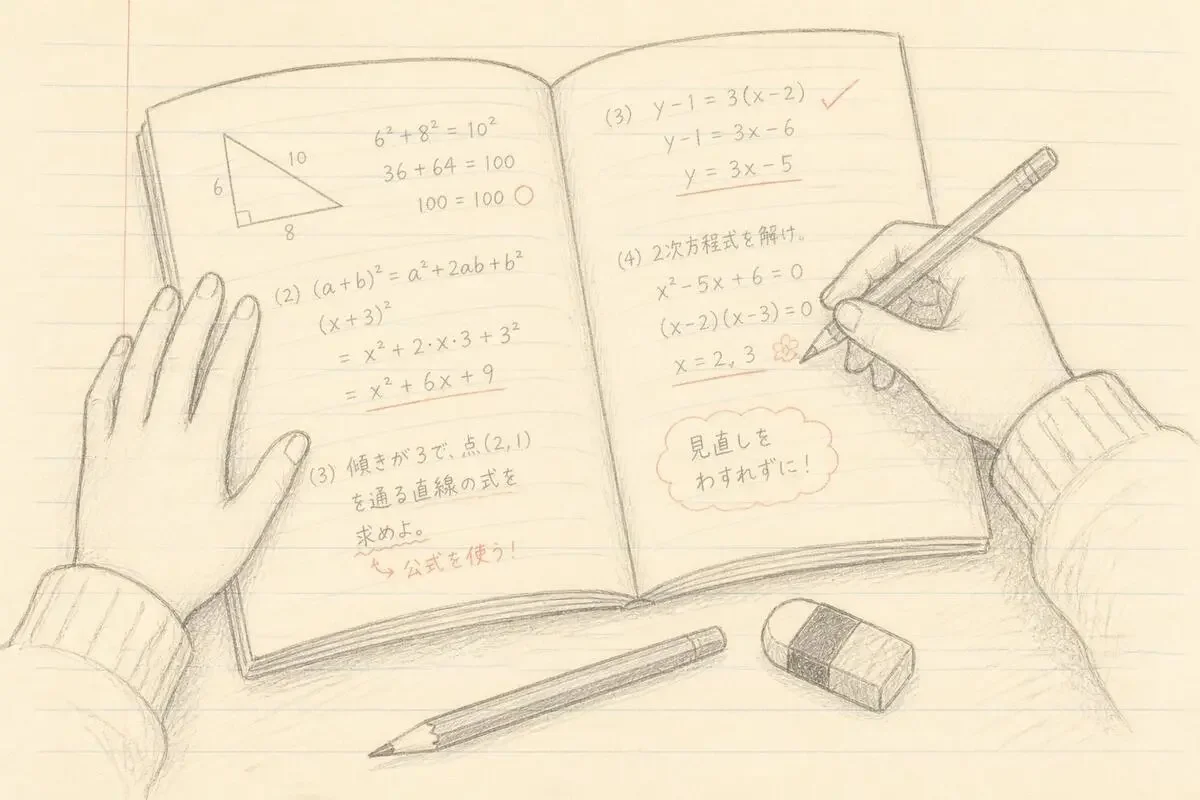 10
6
8
6² + 8² = 10²
36 + 64 = 100
100 = 100 ○
(2) (a + b)² = a² + 2ab + b²
(x + 3)²
= x² + 2·x·3 + 3²
= x² + 6x + 9
(3) 傾きが3で、点(2,1)
を通る直線の式を
求めよ。
↪ 公式を使う!
(3) y − 1 = 3(x − 2) ✓
y − 1 = 3x − 6
y = 3x − 5
(4) 2次方程式を解け。
x² − 5x + 6 = 0
(x − 2)(x − 3) = 0
x = 2, 3
見直しを
わすれずに!